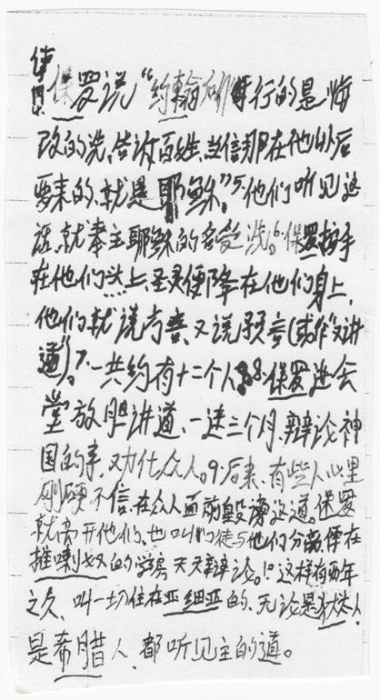 使
保罗说“约翰所行的是悔
改的洗,告诉百姓,当信那在他以后
要来的,就是耶稣。”5.他们听见这
话,就奉主耶稣的名受洗。6.保罗按手
在他们头上,圣灵便降在他们身上,
他们就说方言,又说预言(或作“又讲
道”)。7.一共约有十二个人。8.保罗进会
堂放胆讲道,一连三个月,辩论神
国的事,劝化众人。9.后来,有些人心里
刚硬不信,在众人面前毁谤这道。保罗
就离开他们,也叫门徒与他们分离,便在
推喇奴的学房天天辩论。10.这样有两年
之久,叫一切住在亚细亚的,无论是犹太人,
是希腊人,都听见主的道。